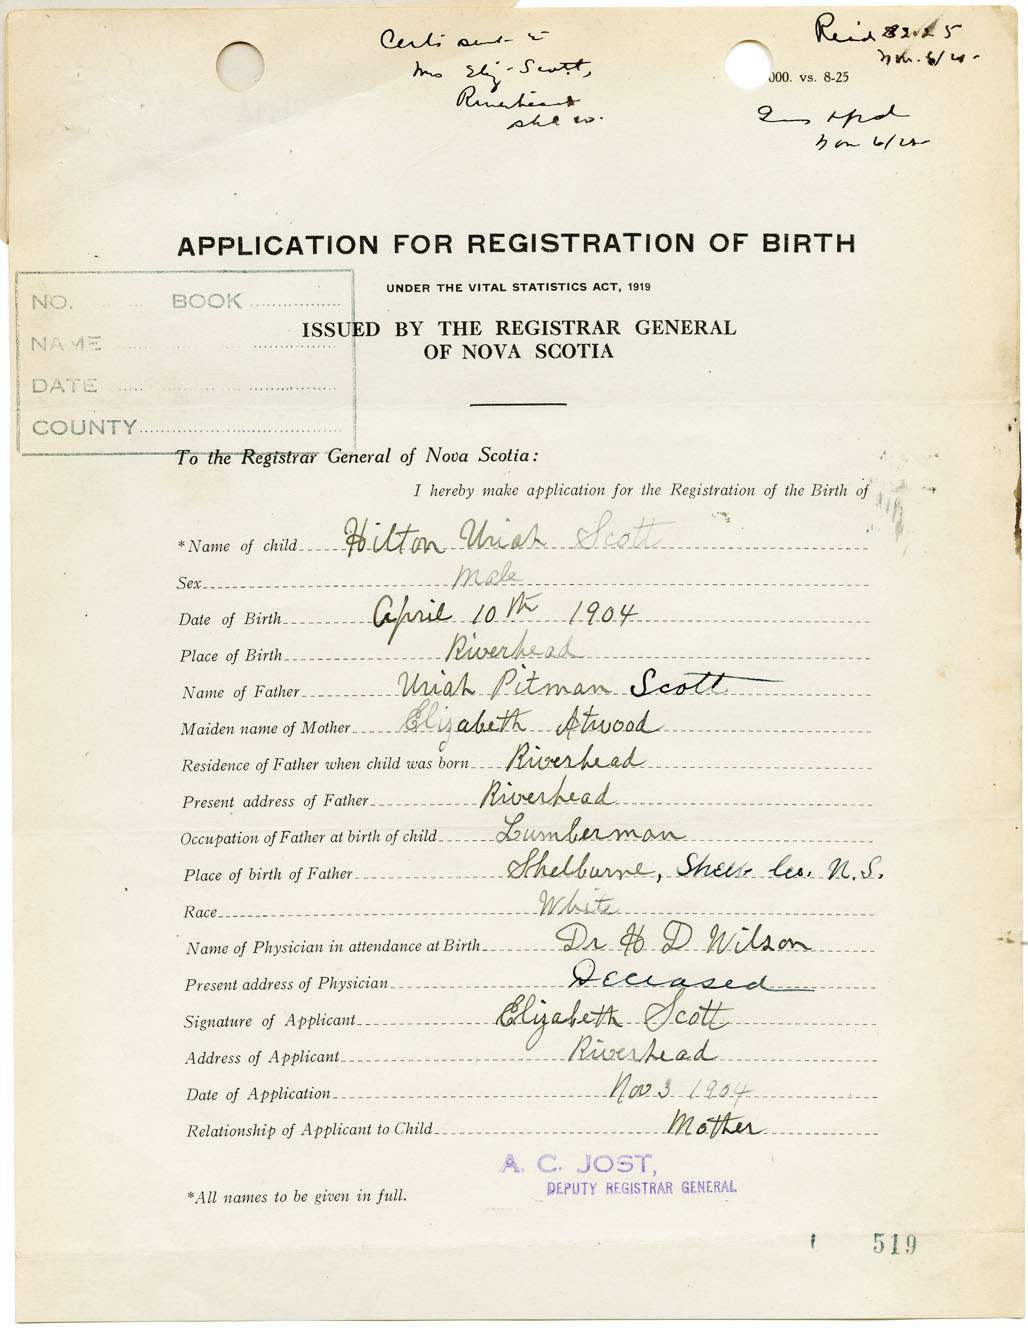 Certi sent to
Mrs Eliz. Scott,
Riverhead
Shel Co.
Nov. 6/25
000. vs. 8-25
Nov 6/25
APPLICATION FOR REGISTRATION OF BIRTH
UNDER THE VITAL STATISTICS ACT, 1919
ISSUED BY THE REGISTRAR GENERAL
OF NOVA SCOTIA
NO. BOOK
NAME
DATE
COUNTY
To the Registrar General of Nova Scotia:
I hereby make application for the Registration of the Birth of
*Name of child Hilton Uriah Scott
Sex Male
Date of Birth April 10th 1904
Place of Birth Riverhead
Name of Father Uriah Pitman Scott
Maiden name of Mother Elizabeth Atwood
Residence of Father when child was born Riverhead
Present address of Father Riverhead
Occupation of Father at birth of child Lumberman
Place of birth of Father Shelburne, Shel. Co. N.S.
Race White
Name of Physician in attendance at Birth Dr H D Wilson
Present address of Physician Deceased
Signature of Applicant Elizabeth Scott
Address of Applicant Riverhead
Date of Application Nov 3 1904
Relationship of Applicant to Child Mother
A. C. JOST,
DEPUTY REGISTRAR GENERAL
*All names to be given in full.
519